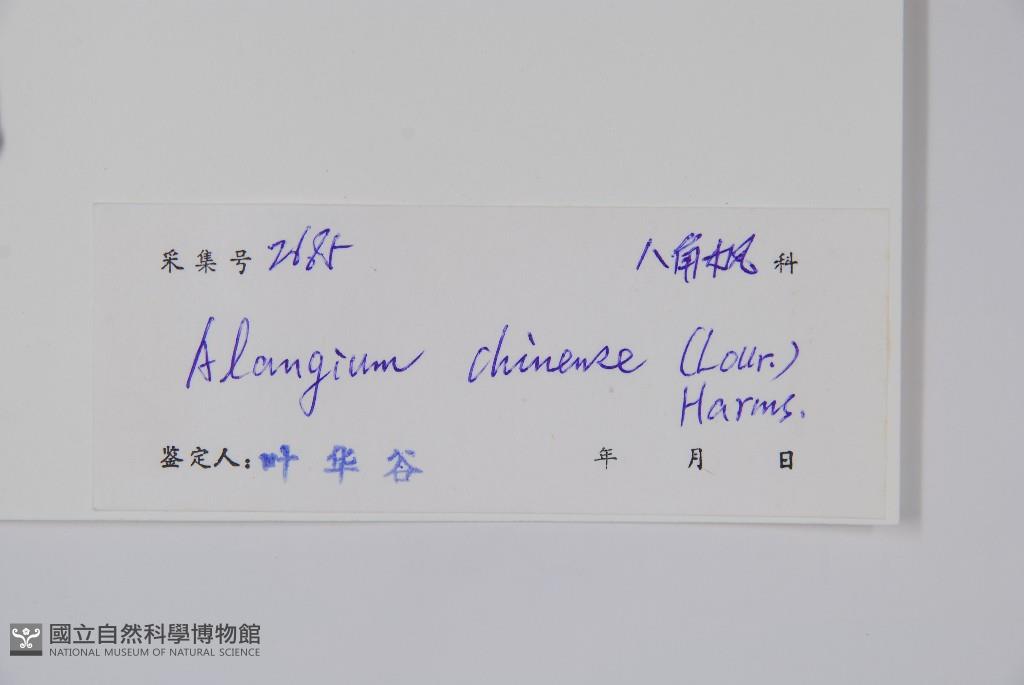 采集号 2685 八角枫 科
Alangium chinense (Lour.)
Harms.
鉴定人: 叶华谷 年 月 日
國立自然科學博物館
NATIONAL MUSEUM OF NATURAL SCIENCE